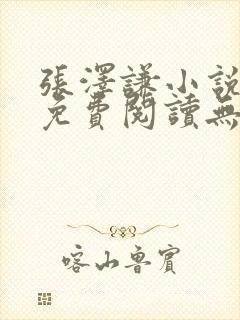 張澤謙小說
免費閱讀無
喀山魯賓